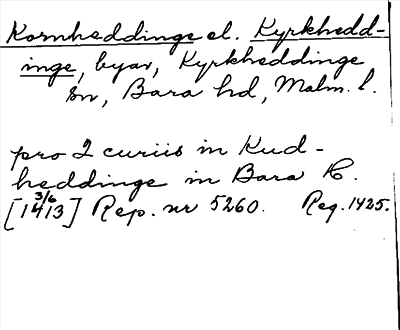 Kornheddinge el. Kyrkhedd-
inge, byar, Kyrkheddinge
sn, Bara hd, Malm. l.
pro 2 curiis in Kud-
heddinge in Bara H.
[1413 3/6] Rep. nr 5260. Reg. 1425.